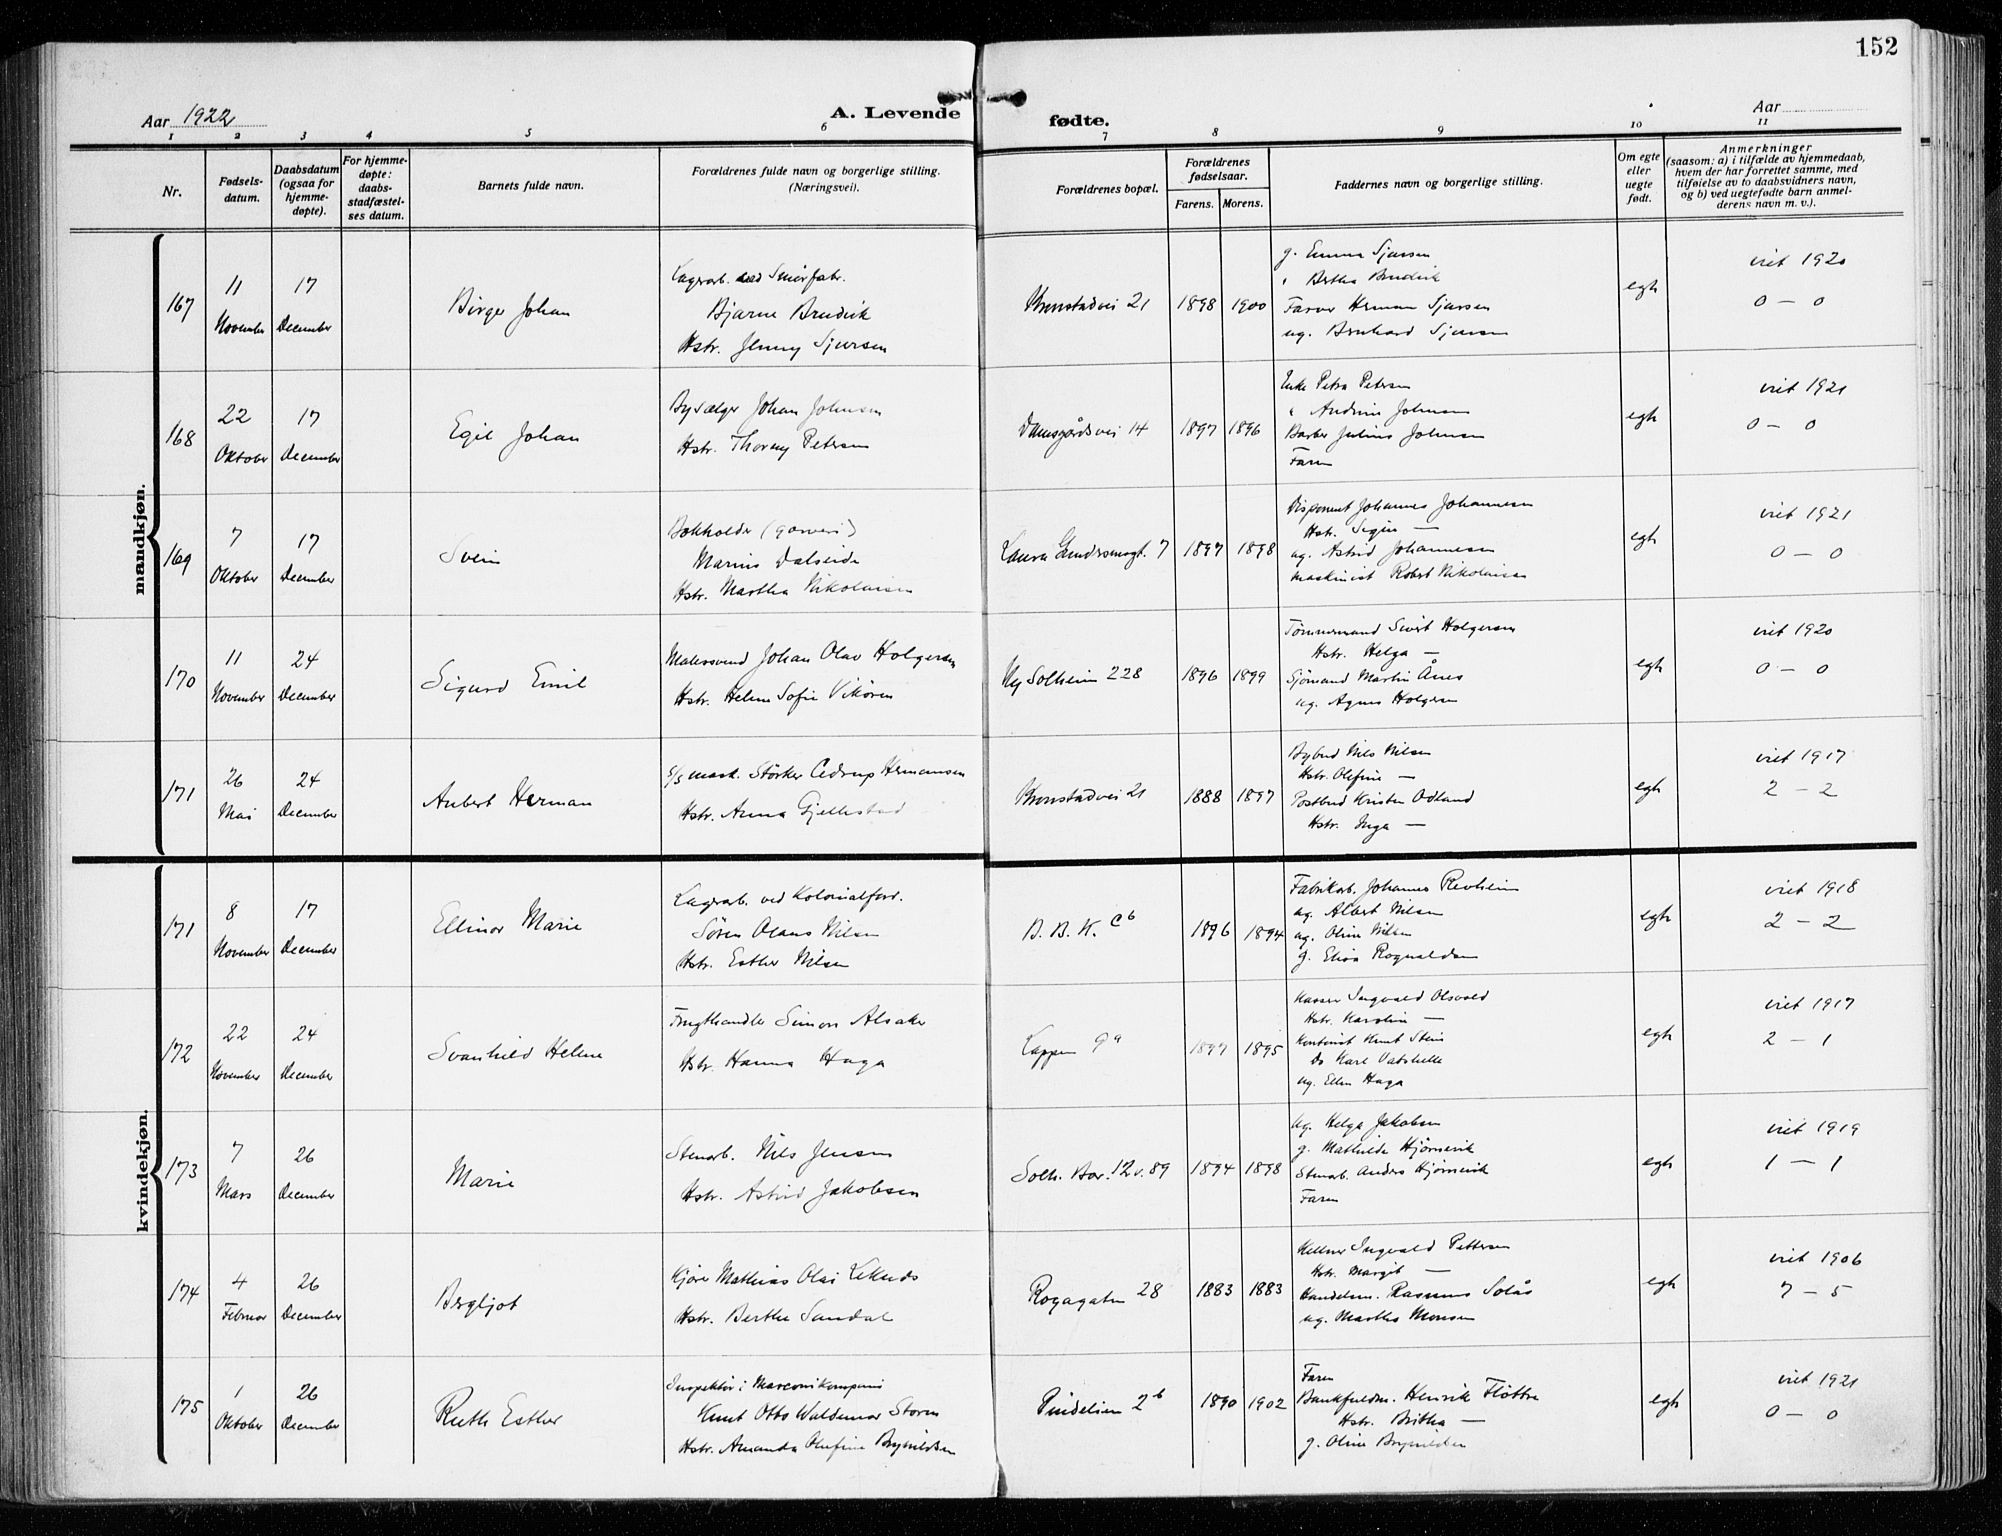 152
Aar 1922
A. Levende fødte.
Aar
1 2 3 4 5 6 7 8 9 10 11
Nr.
Fødsels-
datum.
Daabsdatum
(ogsaa for
hjemme-
døpte).
For hjemme-
døpte:
daabs-
stadfæstel-
ses datum.
Barnets fulde navn.
Forældrenes fulde navn og borgerlige stilling.
(Næringsvei).
Forældrenes bopæl.
Forældrenes
fødselsaar.
Farens. Morens.
Faddernes navn og borgerlige stilling.
Om egte
eller
uegte
født.
Anmerkninger
(saasom: a) i tilfælde av hjemmedaab,
hvem der har forrettet samme, med
tilføielse av to daabsvidners navn,
og b) ved uegtefødte barn anmel-
derens navn m. v.).
mandkjøn.
167
11
November
17
December
Birger Johan
Lagerarb. ved Smørfabr.
Bjarne Brudvik
Hstr. Jenny Sjursen
Kronstadvei 21
1898
1900
g. Emma Sjursen
" Bertha Brudvik
Farver Herman Sjursen
ug. Bernhard Sjursen
egte
viet 1920
0 – 0
168
22
Oktober
17
December
Egil Johan
Bysælger Johan Johnsen
Hstr. Thorny Petersen
Damsgårdsvei 14
1897
1896
Enke Petra Petersen
" Andrine Johnsen
Barber Julius Johnsen
Faren
egte
viet 1921
0 – 0
169
7
Oktober
17
December
Svein
Bokholder (garveri)
Marius Dalseide
Hstr. Martha Nikolaisen
Laura Gundersensgt. 7
1897
1898
Disponent Johannes Johannesen
Hstr. Signe —
ug. Astrid Johannesen
maskinist Robert Nikolaisen
egte
viet 1921
0 – 0
170
11
November
24
December
Sigurd Emil
Malersvend Johan Olav Holgersen
Hstr. Helene Sofie Vikøren
Ny Solheim 228
1896
1899
Tømmermand Sivert Holgersen
Hstr. Helga —
Sjømand Martin Ånes
ug. Agnes Holgersen
egte
viet 1920
0 – 0
171
26
Mai
24
December
Aubert Herman
s/s mask. Størker Cedrup Hermansen
Hstr. Anna Gjellestad
Kronstadvei 21
1888
1897
Bybud Nils Nilsen
Hstr. Olefine —
Postbud Kristen Odland
Hstr. Inga —
egte
viet 1917
2 – 2
kvindekjøn.
171
8
November
17
December
Ellinor Marie
Lagerarb. ved Kolonialforr.
Søren Olaus Nilsen
Hstr. Esther Nilsen
B. B. K. C b
1896
1894
Fabrikarb. Johannes Revheim
ug. Albert Nilsen
ug. Oline Nilsen
g. Elisa Rognaldsen
egte
viet 1918
2 – 2
172
22
November
24
December
Svanhild Helene
Frugthandler Simon Alsaker
Hstr. Hanna Haga
Lappen 9 a
1897
1895
Kasser Ingvald Olsvold
Hstr. Karoline —
Kontorist Knut Stein
do Karl Vatshelle
ug. Ellen Haga
egte
viet 1917
2 – 1
173
7
Mars
26
December
Marie
Stenarb. Nils Jensen
Hstr. Astrid Jakobsen
Solh. Bar. 12 v. 89
1894
1898
ug. Helga Jakobsen
g. Mathilde Hjørnevik
Stenarb. Anders Hjørnevik
Faren
egte
viet 1919
1 – 1
174
4
Februar
26
December
Bergljot
Kjører Mathias Olai Leknes
Hstr. Berthe Sandal
Rogagaten 28
1883
1883
Kellner Ingvald Pettersen
Hstr. Margit —
Handelsm. Rasmus Solås
ug. Martha Monsen
egte
viet 1906
7 – 5
175
1
Oktober
26
December
Ruth Esther
Inspektør i Marconikompani
Knut Otto Waldemar Storm
Hstr. Amanda Olefine Brynildsen
Pindelien 2 b
1890
1902
Faren
Bankfuldm. Henrik Fløttre
Hstr. Britha —
g. Oline Brynildsen
egte
viet 1921
0 – 0